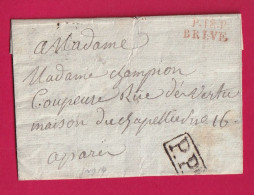 P.18.P
BRIVE
a Madame
Madame Champion
Coupeuse Rue de Vertu
maison du chapellier No 16
a paris
P.P.